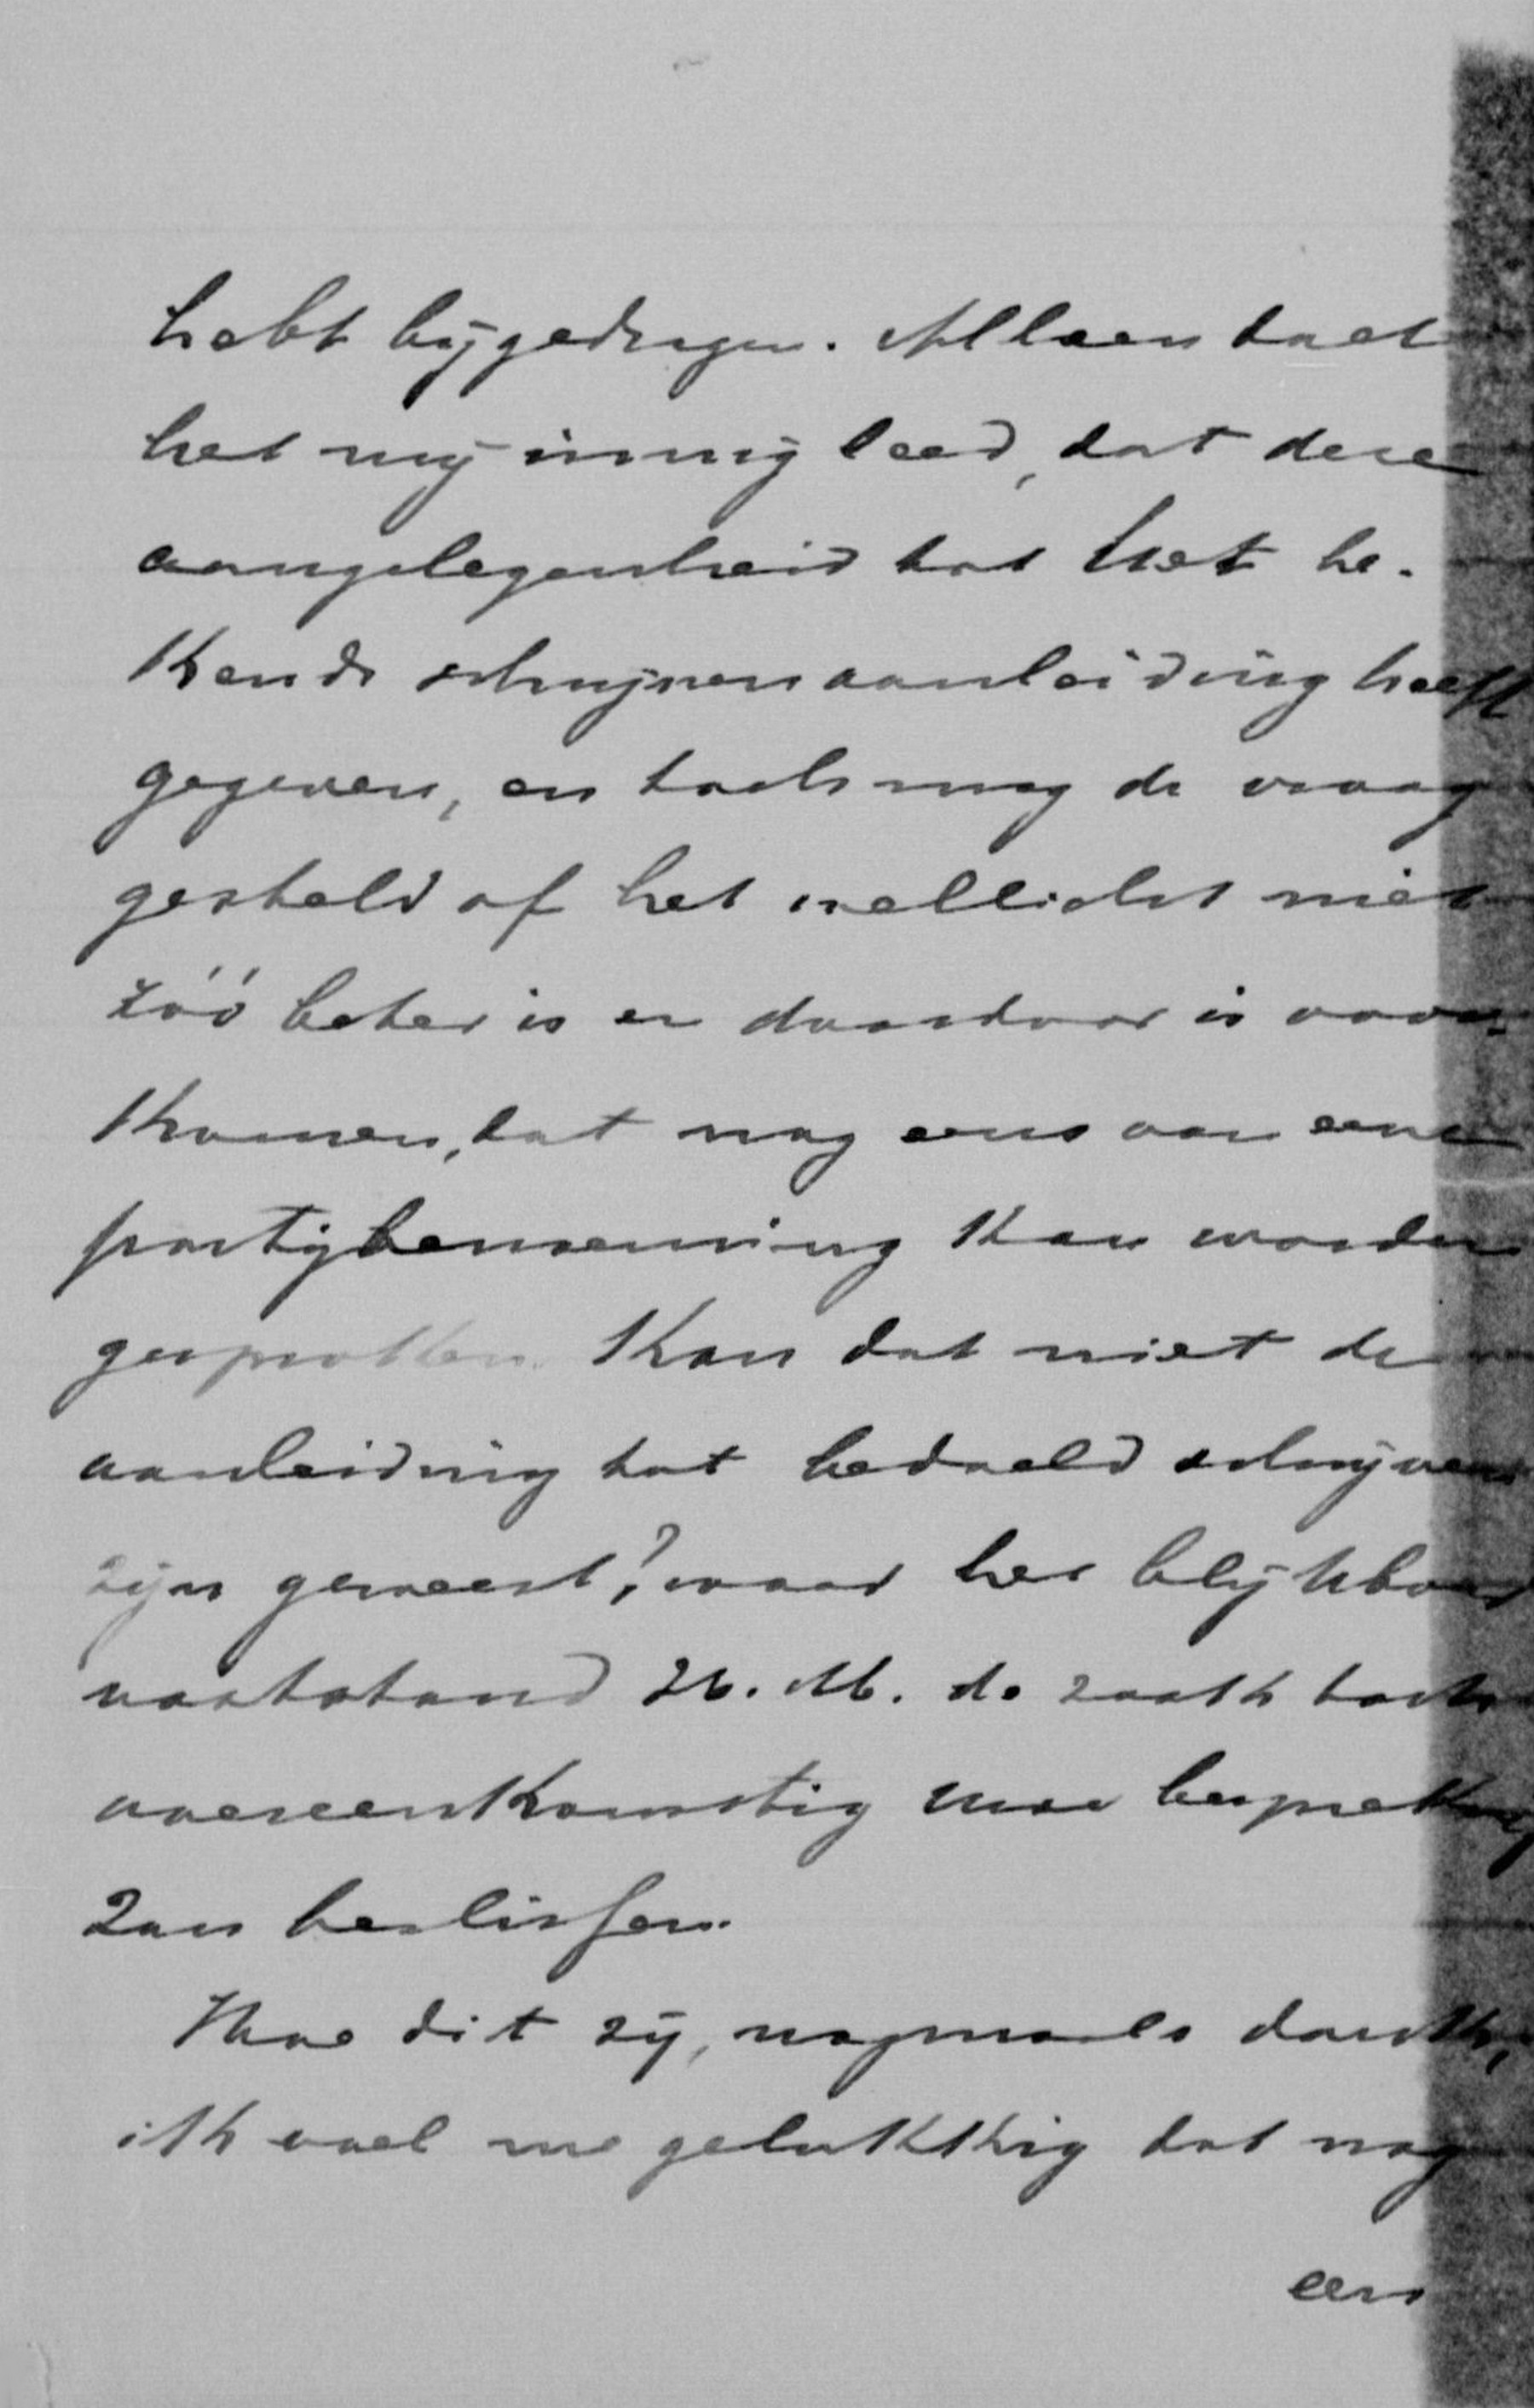 hebt bijgedragen. Alleen doet
het mij innig leed, dat deze
aangelegenheid tot het be-
kende schrijven aanleiding heeft
gegeven, en toch mag de vraag
gesteld of het wellicht niet
zóó beter is en daardoor is voor-
komen, dat nog eens van eene
partijbenoeming kan worden
gesproken. Kan dat niet de
aanleiding tot bedoeld schrijven
zijn geweest? waar het blijkbaar
vaststond Z.M. de zaak toch
overeenkomstig uwe bespreking
zou beslissen.
Hoe dit zij, nogmaals dank,
ik voel me gelukkig dat nog
eens